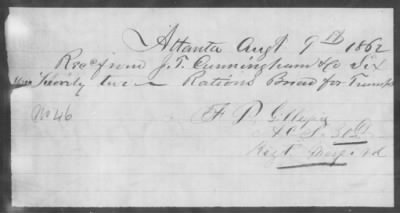 Atlanta Augt 9th 1862
Recd from J. T. Cunningham & Co Six
Hun Seventy two Rations Bread for Troops
No 46
F P Gillespie
A C S 30th
Regt